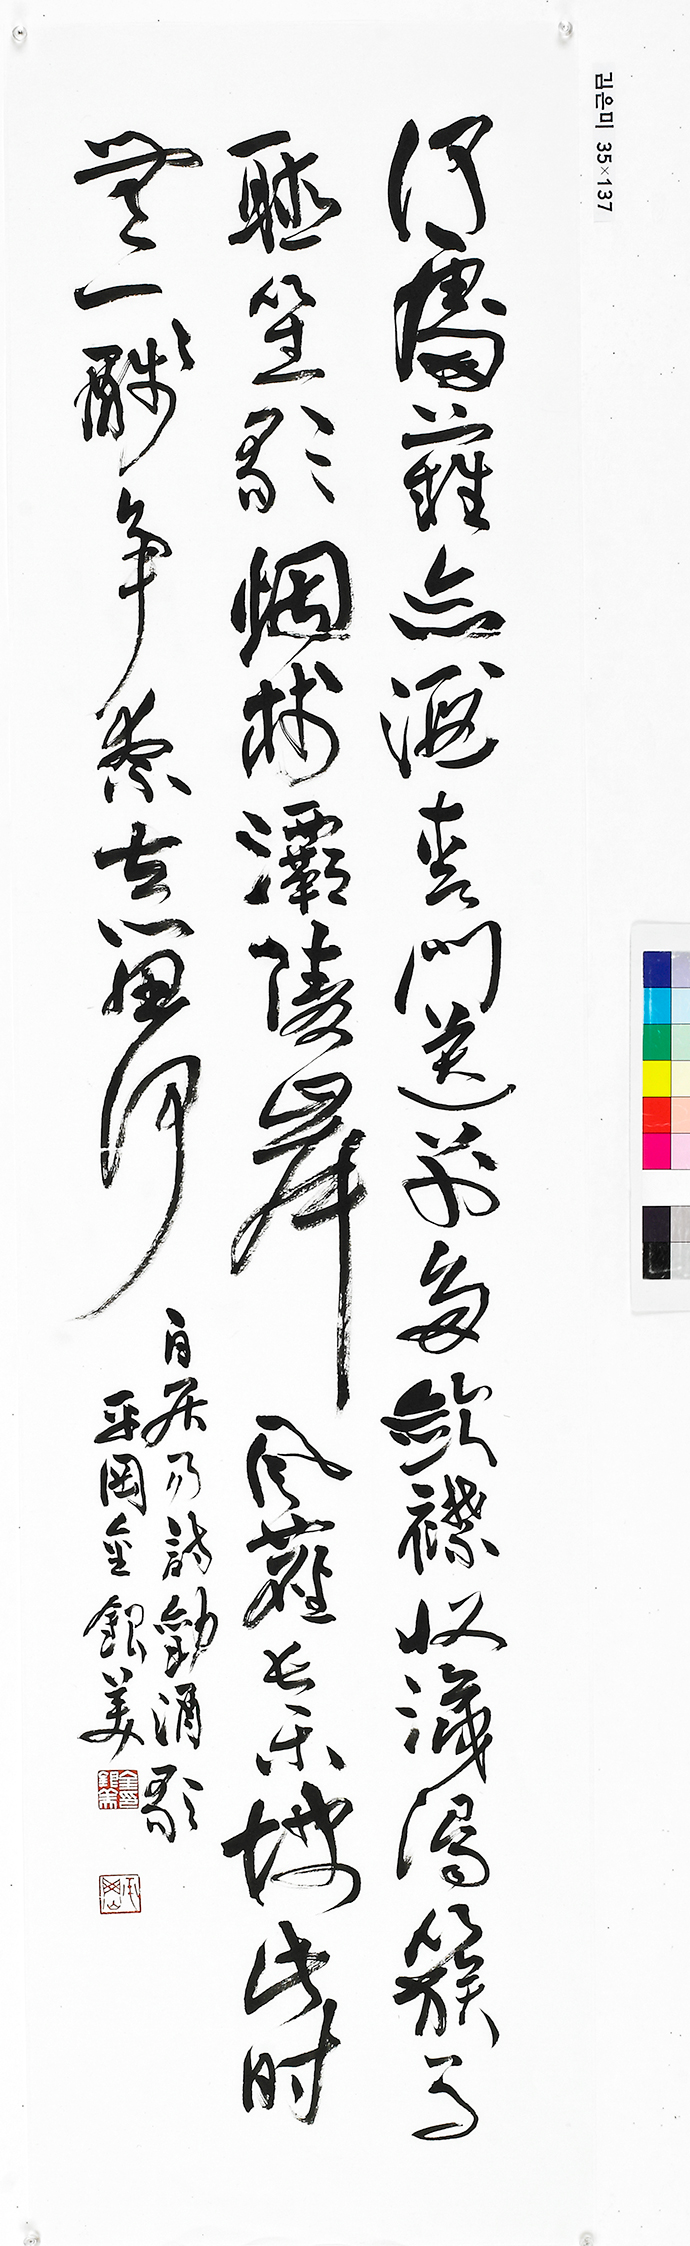 何處難忘酒青門送別多斂襟收涕淚簇馬
聽笙歌烟樹灞陵岸風塵長樂坡此時
無一醆爭奈去留何
白居易詩勸酒歌
平岡金銀美
김은미 35×137